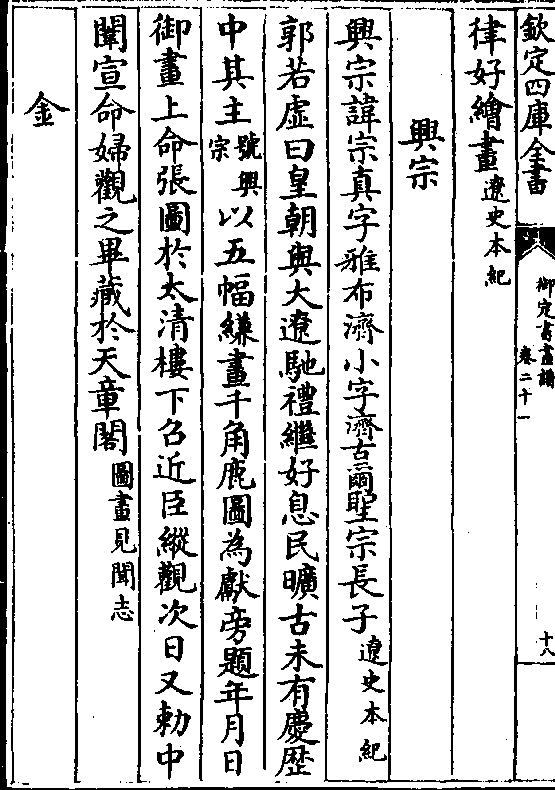 欽定四庫全書
御定書畫譜
卷二十一
十八
律好繪畫遼史本紀
興宗
興宗諱宗真字雅布濟小字濟古爾聖宗長子遼史本紀
郭若虛曰皇朝與大遼馳禮繼好息民曠古未有慶歴
中其主號興宗以五幅縑畫千角鹿圖為獻旁題年月日
御畫上命張圖於太清樓下召近臣縱觀次日又勅中
闈宣命婦觀之畢藏於天章閣圖畫見聞志
金